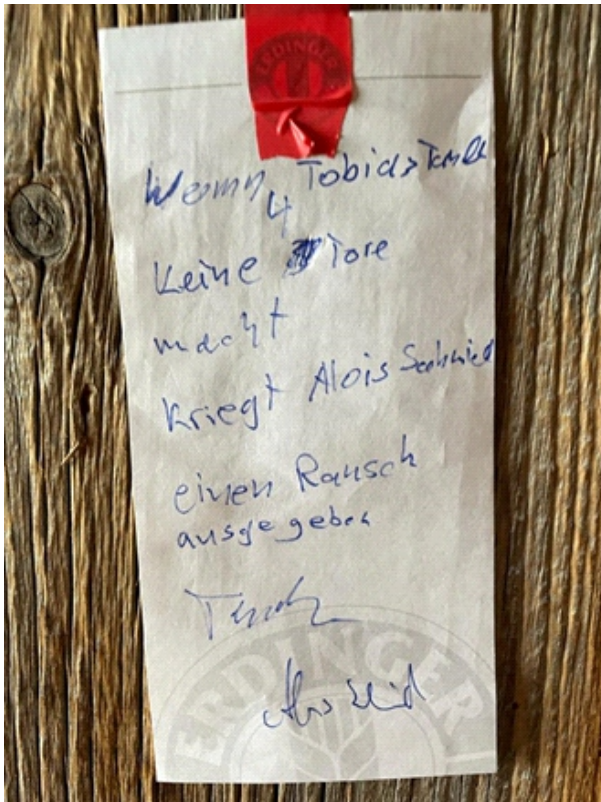 ERDINGER
Wenn Tobias
4
keine Tore
macht
kriegt Alois Schmied
einen Rausch
ausgegeben
ERDINGER